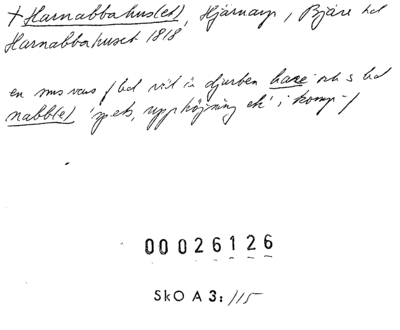 + Harnabbahus(et), Hjärnarp, Bjäre hd
Harnabbahuset 1818
en sms vars f led väl är djurben hare och s led
nabb(e) 'spets, upphöjning etc' i komp-f
00026126
SkO A 3: 115